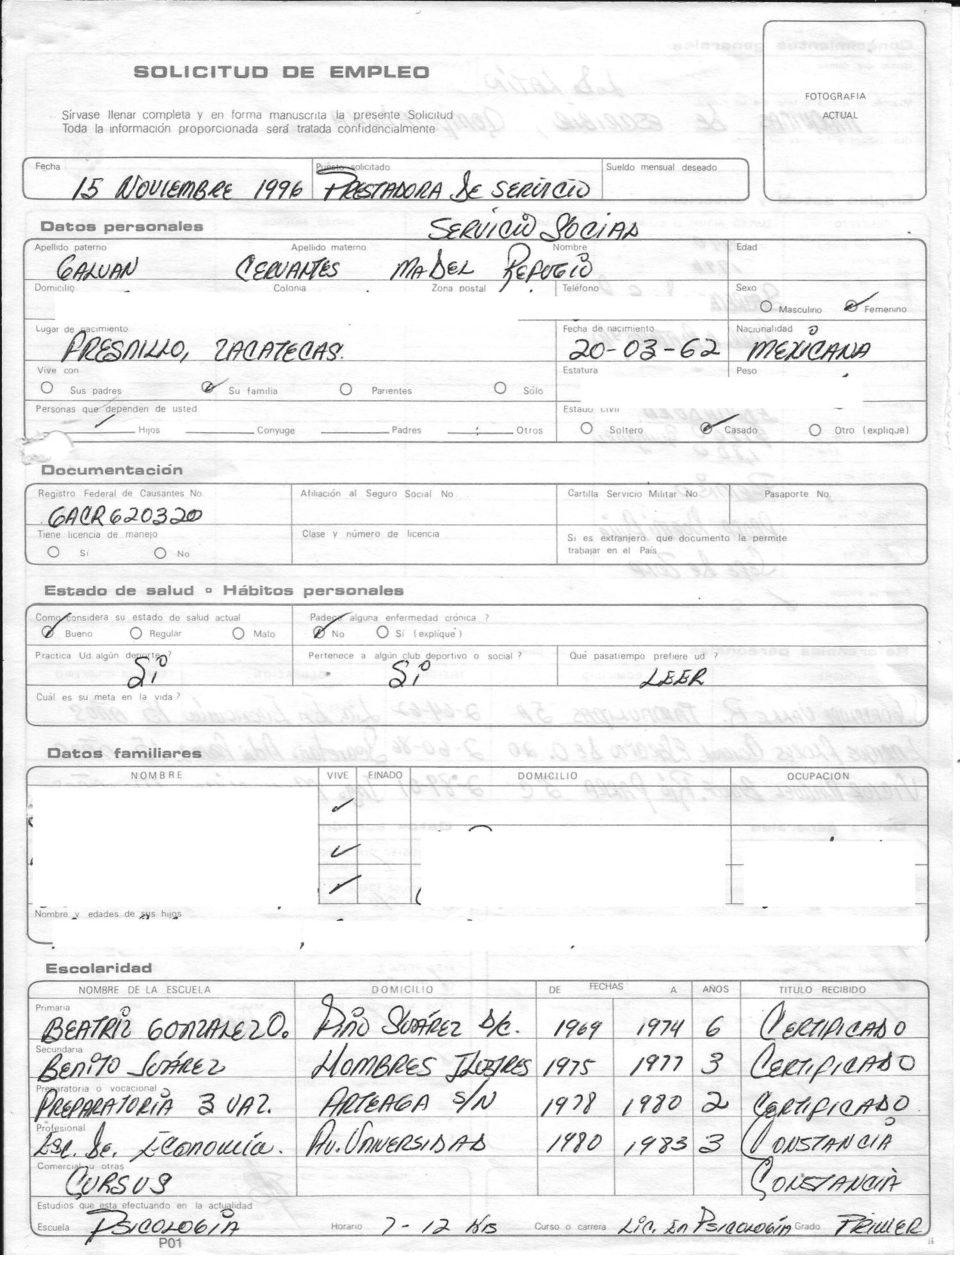 SOLICITUD DE EMPLEO
FOTOGRAFIA
ACTUAL
Sírvase llenar completa y en forma manuscrita la presente Solicitud
Toda la información proporcionada será tratada confidencialmente
Fecha Puesto solicitado Sueldo mensual deseado
15 NOVIEMBRE 1996 PRESTADORA DE SERVICIO
SERVICIO SOCIAL
Datos personales
Apellido paterno Apellido materno Nombre Edad
GALVAN CERVANTES MA DEL REFUGIO
Domicilio Colonia Zona postal Teléfono Sexo
Masculino Femenino
Lugar de nacimiento Fecha de nacimiento Nacionalidad
FRESNILLO, ZACATECAS. 20-03-62 MEXICANA
Vive con Estatura Peso
Sus padres Su familia Parientes Sólo
Personas que dependen de usted Estado civil
Hijos Conyuge Padres Otros Soltero Casado Otro (explique)
Documentación
Registro Federal de Causantes No. Afiliación al Seguro Social No Cartilla Servicio Militar No Pasaporte No.
GACR620320
Tiene licencia de manejo Clase y número de licencia Si es extranjero que documento le permite
trabajar en el País
Si No
Estado de salud o Hábitos personales
Como considera su estado de salud actual Padece alguna enfermedad crónica ?
Bueno Regular Malo No Sí (explique)
Practica Ud algún deporte ? Pertenece a algún club deportivo o social ? Qué pasatiempo prefiere ud ?
Si Si LEER
Cuál es su meta en la vida ?
Datos familiares
NOMBRE VIVE FINADO DOMICILIO OCUPACION
Nombre y edades de sus hijos
Escolaridad
NOMBRE DE LA ESCUELA DOMICILIO DE FECHAS A AÑOS TITULO RECIBIDO
Primaria
BEATRIZ GONZALEZ O. PINO SUAREZ S/C. 1969 1974 6 CERTIFICADO
Secundaria
BENITO JUÁREZ HOMBRES ILUSTRES 1975 1977 3 CERTIFICADO
Preparatoria o vocacional
PREPARATORIA 3 UAZ. ARTEAGA S/N 1978 1980 2 CERTIFICADO
Profesional
Esc. de Economía. AV. UNIVERSIDAD 1980 1983 3 CONSTANCIA
Comercial u otras
CURSOS CONSTANCIA
Estudios que esta efectuando en la actualidad
Escuela PSICOLOGÍA Horario 7-12 Hrs Curso o carrera LIC. EN PSICOLOGÍA Grado PRIMER
P01